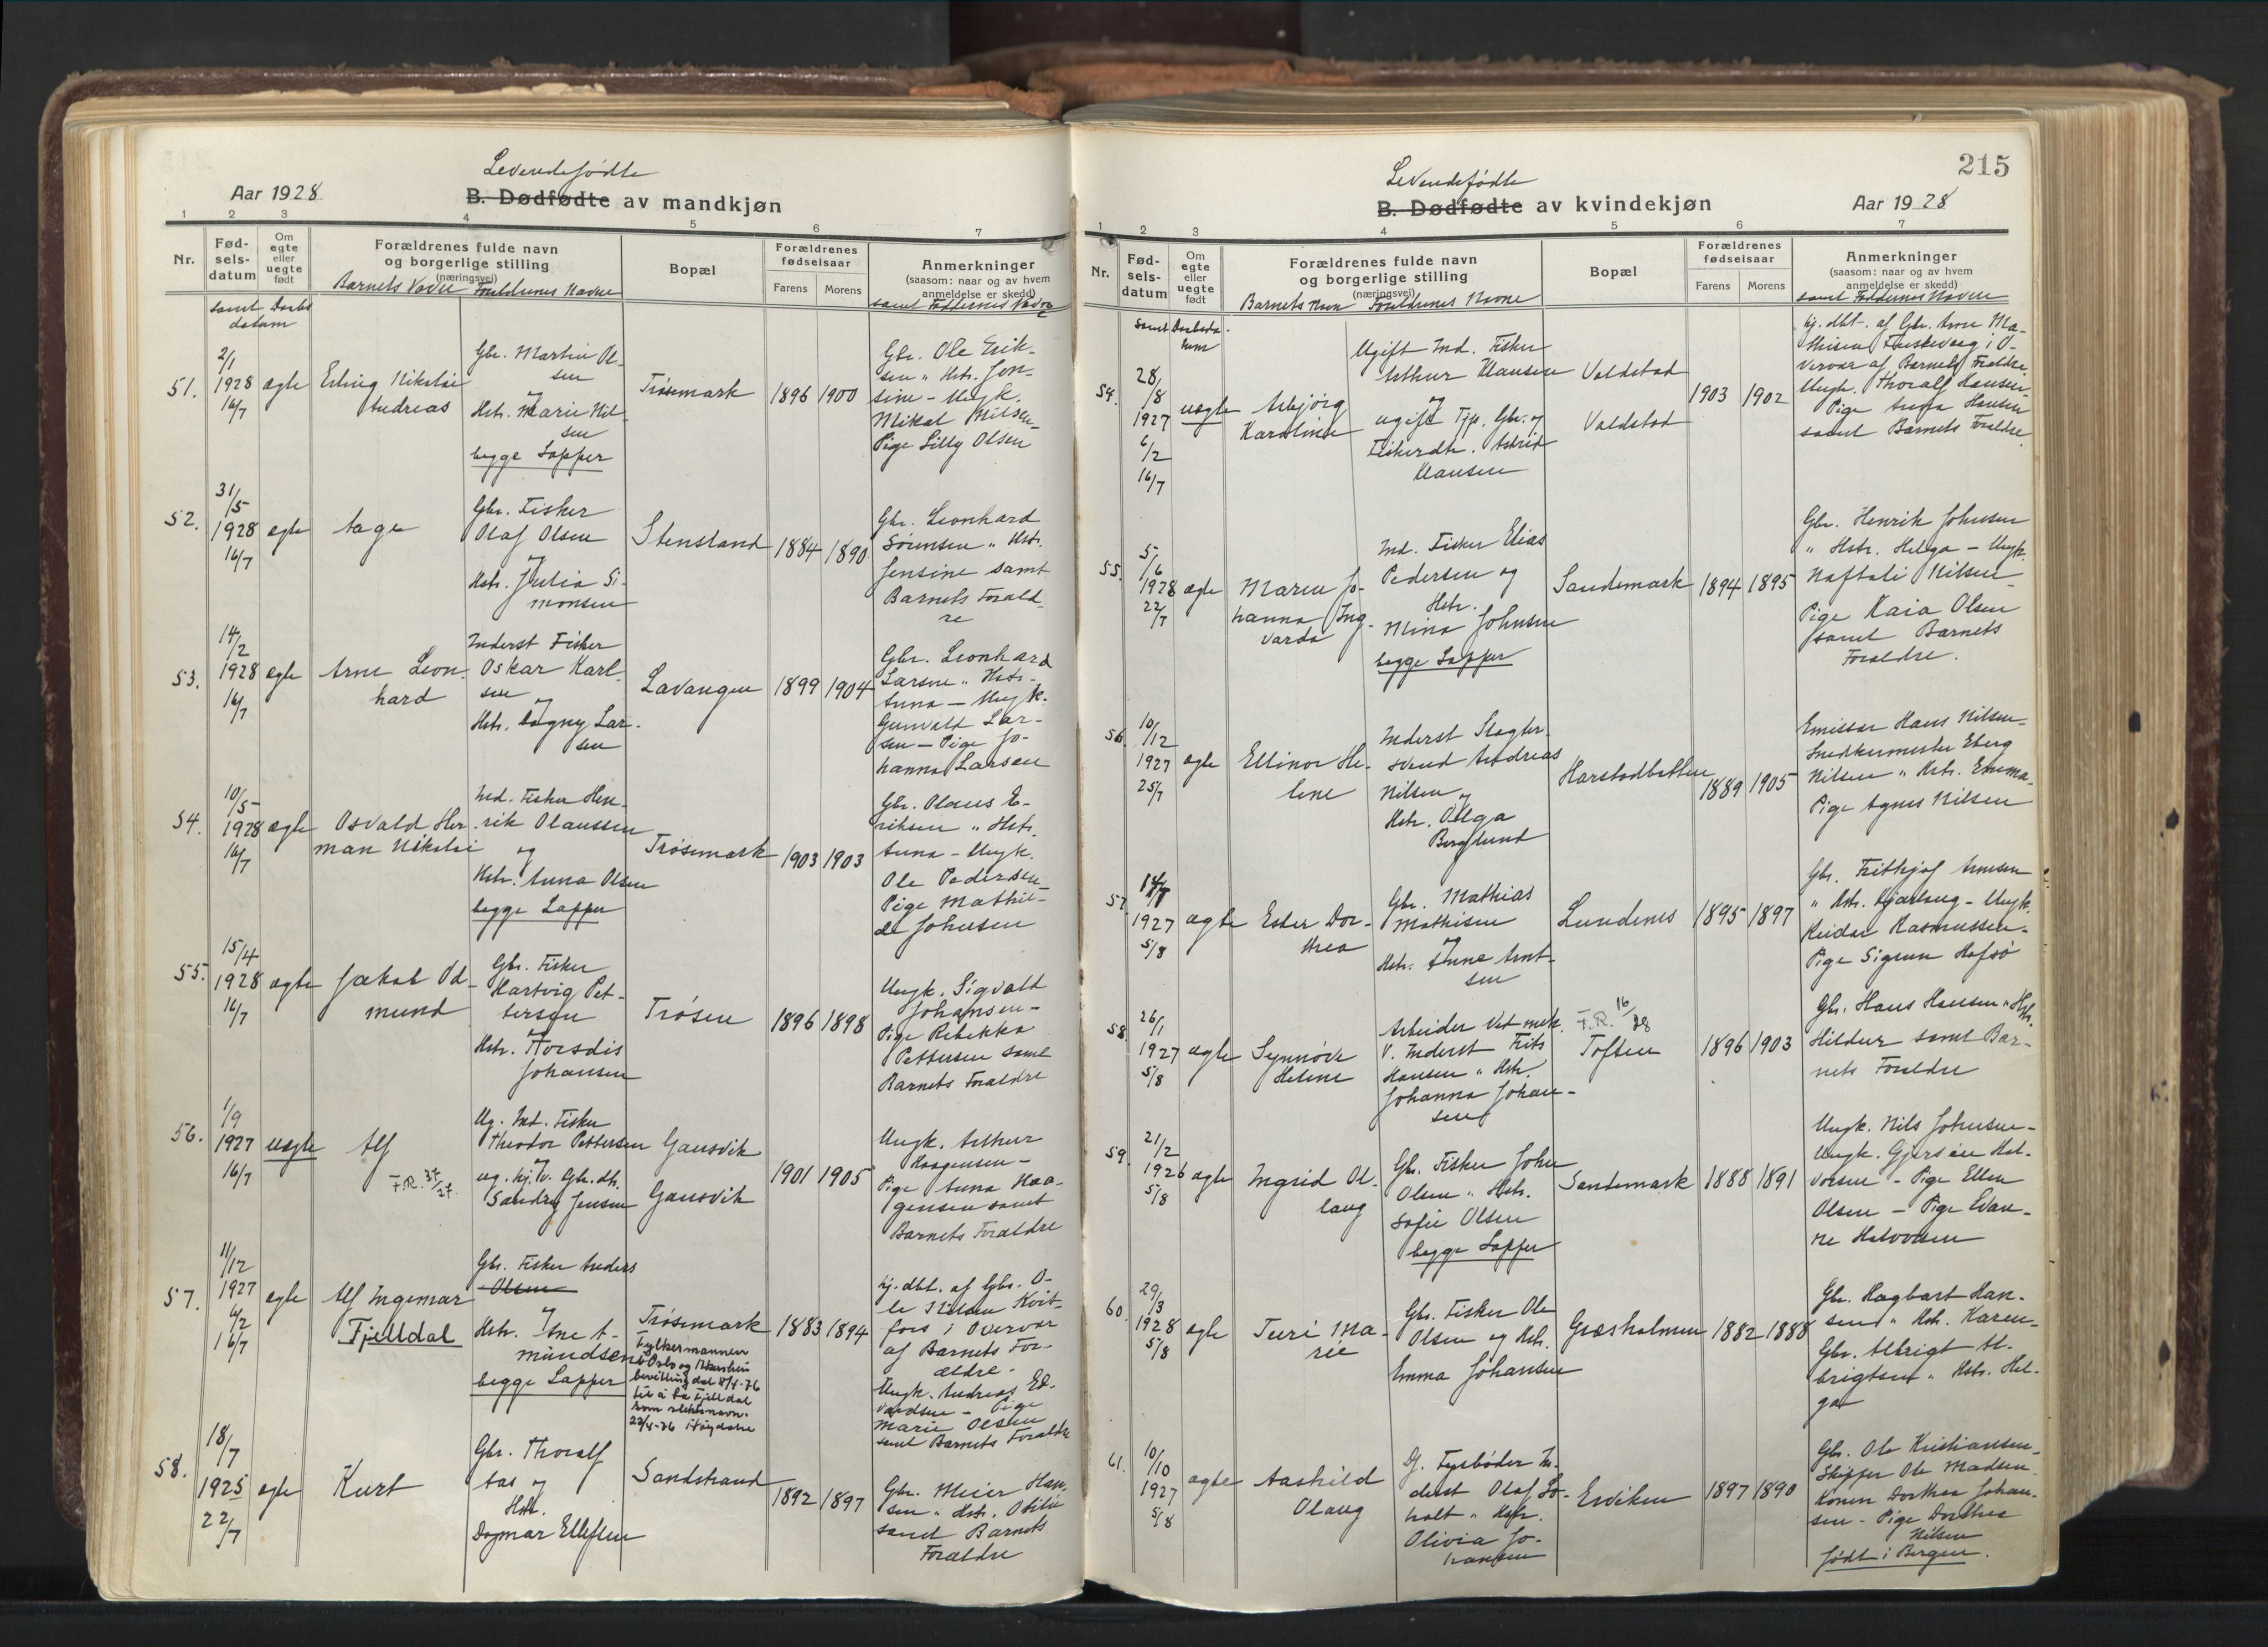 Levendefødte
Aar 1928
B. Dødfødte av mandkjøn
1 2 3 4 5 6 7
Nr.
Fød-
sels-
datum
Om
egte
eller
uegte
født
Forældrenes fulde navn
og borgerlige stilling
(næringsvei)
Barnets Navn Forældrenes Navne
Bopæl
Forældrenes
fødselsaar
Farens Morens
Anmerkninger
(saasom: naar og av hvem
anmeldelse er skedd)
samt Faddernes Navne
samt Daabs
datum
51.
2/1
1928
16/7
ægte
Erling Nikolai
Andreas
Gbr. Martin Ol-
sen
og
Hstr. Marie Nil-
sen
begge Lapper
Trøsemark
1896 1900
Gbr. Ole Erik-
sen " Hstr. Jen-
sine - Ungk.
Mikal Nilsen -
Pige Lilly Olsen
52.
31/5
1928
16/7
ægte
Aage
Gbr. Fisker
Olaf Olsen
og
Hstr. Julia Si-
monsen
Stensland
1884 1890
Gbr. Leonhard
Sørensen " Hstr.
Jensine samt
Barnets Foræld-
re
53.
14/2
1928
16/7
ægte
Arne Leon-
hard
Inderst Fisker
Oskar Karl-
sen
og
Hstr. Dagny Lar-
sen
Lavangen
1899 1904
Gbr. Leonhard
Larsen " Hstr.
Anna - Ungk.
Gunvald Lar-
sen - Pige Jo-
hanna Larsen
54.
10/5
1928
16/7
ægte
Osvald Her-
man Nikolai
Ind. Fisker Hen-
rik Olaussen
og
Hstr. Anna Olsen
begge Lapper
Trøsemark
1903 1903
Gbr. Olaus E-
riksen " Hstr.
Anna - Ungk.
Ole Pedersen -
Pige Mathil-
de Johnsen
55.
15/4
1928
16/7
ægte
Jakob Od-
mund
Gbr. Fisker
Hartvig Pet-
tersen
Hstr. Thordis
Johansen
Trøsen
1896 1898
Ungk. Sigvald
Johansen -
Pige Rebekka
Pettersen samt
Barnets Forældre
56.
1/9
1927
16/7
uægte
Alf
F.R. 37/27.
Ug. Ind. Fisker
Theodor Pettersen
og
ug. hj.v. Gbr. dtr.
Sandra Jensen
Gausvik
Gausvik
1901 1905
Ungk. Arthur
Haagensen -
Pige Anna Haa-
gensen samt
Barnets Forældre
57.
11/12
1927
6/2
16/7
ægte
Alf Ingemar
Fjelldal
Gbr. Fisker Anders
Olsen
og
Hstr. Ane A-
mundsen
begge Lapper
Trøsemark
Fylkesmannen
i Oslo og Akershus
bevilling dat 8/4-76
til å ta Fjelldal
som slektsnavn.
1883 1894
hj.dbt. af Gbr. O-
le Nilsen Kvit-
fors i Overvær
af Barnets For-
ældre -
Ungk. Andreas Ed-
vardsen - Pige
Marie Olsen
samt Barnets Forældre
58.
18/7
1925
22/7
ægte
Kurt
Gbr. Thoralf
Aas og
Hstr.
Dagmar Ellefsen
Sandstrand
1892 1897
Gbr. Meier Han-
sen " Hstr. Otilie
samt Barnets
Forældre
215
Levendefødte
B. Dødfødte av kvindekjøn
Aar 1928
1 2 3 4 5 6 7
Nr.
Fød-
sels-
datum
Om
egte
eller
uegte
født
Forældrenes fulde navn
og borgerlige stilling
(næringsvei)
Barnets Navn Forældrenes Navne
Bopæl
Forældrenes
fødselsaar
Farens Morens
Anmerkninger
(saasom: naar og av hvem
anmeldelse er skedd)
samt Faddernes Navne
samt Daabsda-
tum
54.
28/8
1927
6/2
16/7
uægte
Asbjørg
Karoline
Ugift Ind. Fisker
Arthur Klausen
og
ugift Tjp. Gbr. og
Fiskerdtr. Astrid
Klausen
Voldstad
Voldstad
1903 1902
hj. dbt. af Gbr. Arne Ma-
thisen Fuskevaag i O-
vervær af Barnets Forældre
Ungk. Thoralf Hansen
Pige Anna Hansen
samt Barnets Forældre
55.
5/6
1928
22/7
ægte
Maren Jo-
hanna Ing-
varda
Ind. Fisker Elias
Pedersen og
Hstr.
Mina Johnsen
begge Lapper
Sandemark
1894 1895
Gbr. Henrik Johnsen
" Hstr. Helga - Ungk.
Naftali Nilsen -
Pige Kaia Olsen
samt Barnets
Forældre.
56.
10/12
1927
25/7
ægte
Ellinor He-
lene
Inderst Slagter-
svend Andreas
Nilsen og
Hstr. Olga
Berglund
Harstadbotten
1889 1905
Emissær Hans Nilsen -
Snedkermester Eberg
Nilsen " Hstr. Emma -
Pige Agnes Nilsen
57.
1927
5/8
ægte
Ester Dor-
thea
Gbr. Mathias
Mathisen
og
Hstr. Anne Arnt-
sen
Lundenes
1895 1897
Gbr. Frithjof Arnesen
" Hstr. Hjørdis - Ungk.
Reidar Rasmussen -
Pige Sigrun Hofsø
58.
26/1
1927
5/8
ægte
Synnøve
Helene
Arbeider Vet mek.
V. Inderst Frits
Hansen " Hstr.
Johanna Johan-
sen
F.R. 16/28
Toften
1896 1903
Gbr. Hans Hansen " Hstr.
Hildur samt Bar-
nets Forældre
59.
21/2
1926
5/8
ægte
Ingrid Ol-
laug
Gbr. Fisker John
Olsen " Hstr.
Sofie Olsen
begge Lapper
Sandemark
1888 1891
Ungk. Nils Johnsen -
Ungk. Hal-
vorsen - Pige Ellen
Olsen - Pige
60.
29/3
1928
5/8
ægte
Turi Ma-
rie
Gbr. Fisker Ole
Olsen og Hstr.
Emma Johansen
Græsholmen
1882 1888
Gbr. Hagbart Han-
sen " Hstr. Karen -
Gbr. Albrigt Al-
brigtsen " Hstr. Hel-
ga
61.
10/10
1927
5/8
ægte
Aashild
Olaug
Dj. Fyrbøder In-
derst Olaf Lø-
holt " Hstr.
Olivia Jo-
hansen
Erviken
1897 1890
Gbr. Ole Kristiansen -
Skipper Ole Madsen -
Konen Dorthea Johan-
sen - Pige Dorthea
Nilsen
født i Bergen.